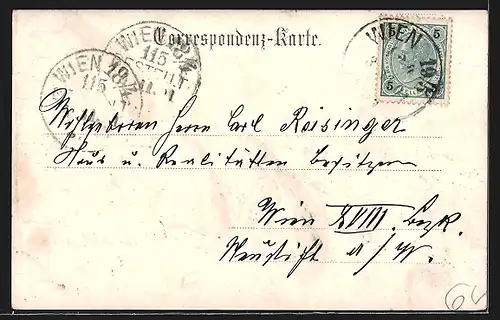 Correspondenz-Karte.
WIEN 19/4
115
BESTELLT
WIEN 18/4
115
WIEN 19/
5 5
5
Wohlgeboren Herrn Carl Reisinger
Haus u. Realitätten Besitzer
Wien XVIII. Bezk.
Neustift a/W.